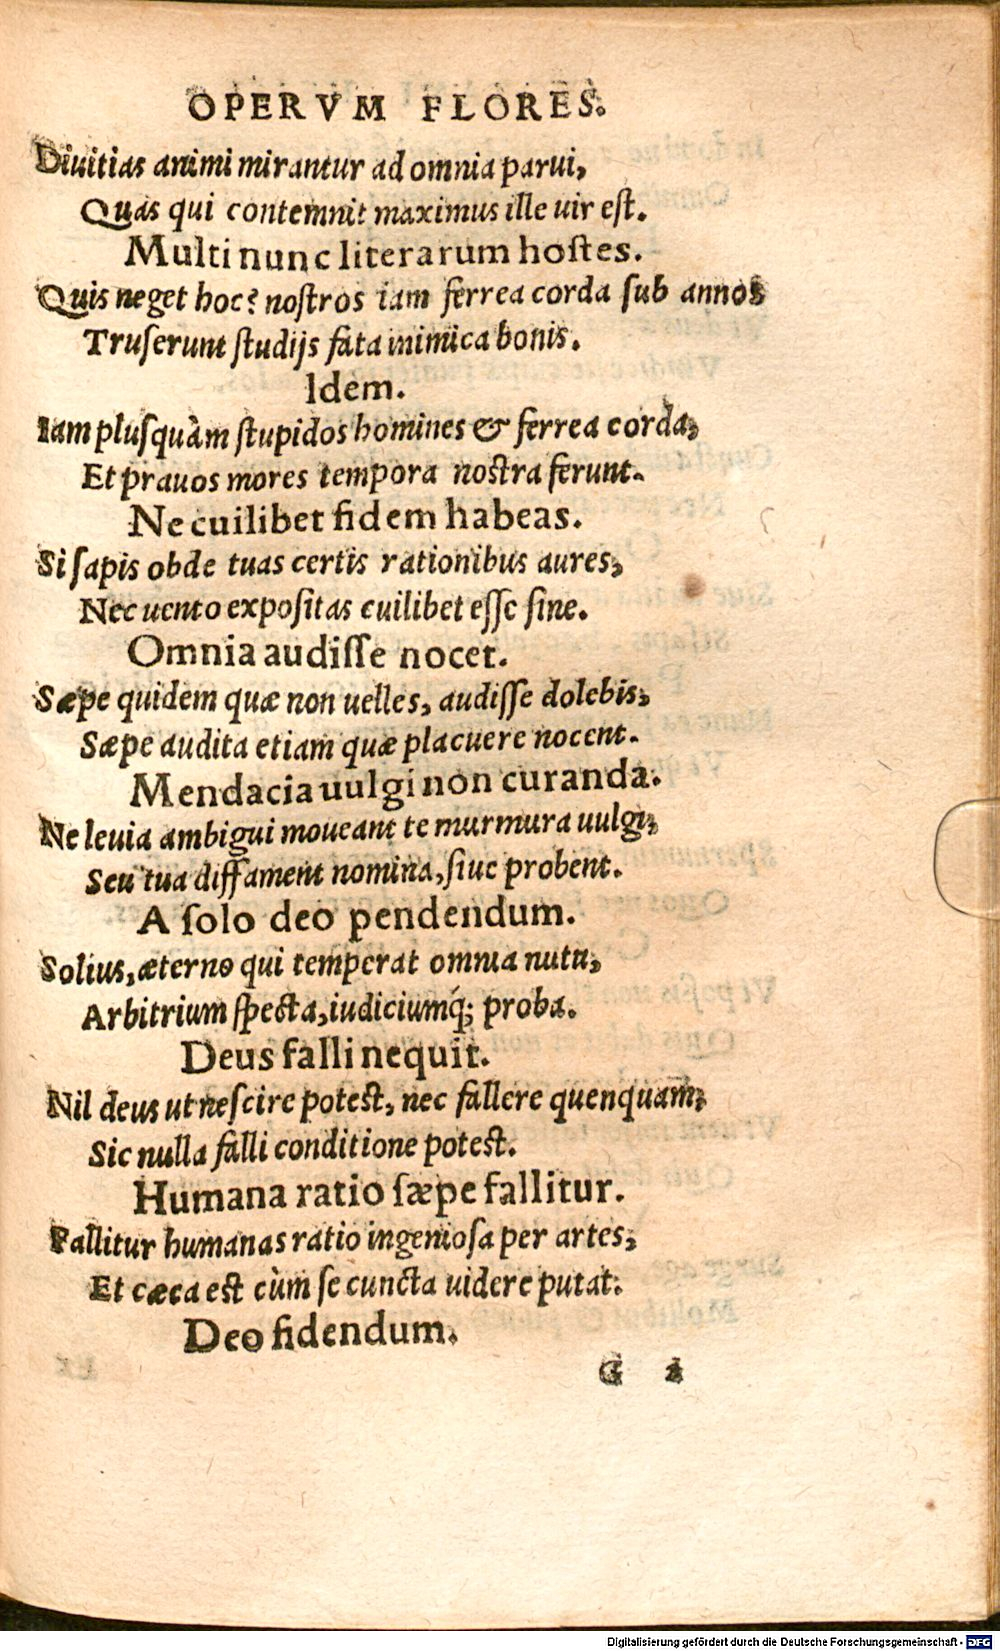 OPERVM FLORES.
Diuitias animi mirantur ad omnia parui,
Quas qui contemnit maximus ille uir est.
Multi nunc literarum hostes.
Quis neget hoc? nostros iam ferrea corda sub annos
Truserunt studijs fata inimica bonis.
Idem.
Iam plusquàm stupidos homines & ferrea corda,
Et prauos mores tempora nostra ferunt.
Ne cuilibet fidem habeas.
Si sapis obde tuas certis rationibus aures,
Nec uento expositas cuilibet esse sine.
Omnia audisse nocet.
Sæpe quidem quæ non uelles, audisse dolebis,
Sæpe audita etiam quæ placuere nocent.
Mendacia uulgi non curanda.
Ne leuia ambigui moueant te murmura uulgi,
Seu tua diffament nomina, siue probent.
A solo deo pendendum.
Solius, æterno qui temperat omnia nutu,
Arbitrium specta, iudiciumq́; proba.
Deus falli nequit.
Nil deus ut nescire potest, nec fallere quenquam,
Sic nulla falli conditione potest.
Humana ratio sæpe fallitur.
Fallitur humanas ratio ingeniosa per artes,
Et cæca est cùm se cuncta uidere putat.
Deo fidendum.
G 2
Digitalisierung gefördert durch die Deutsche Forschungsgemeinschaft - DFG